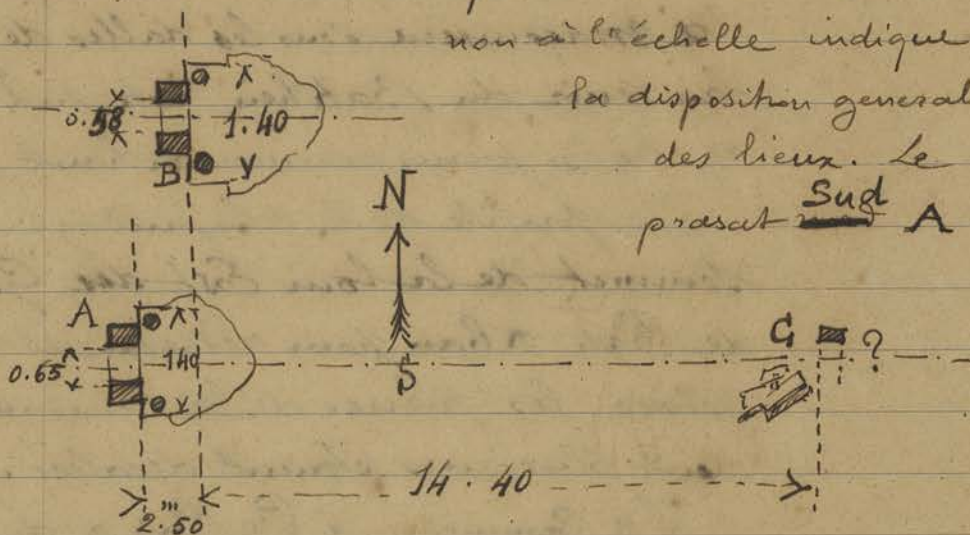 non à l'échelle indique
la disposition general
des lieux. Le
prasat Sud A
0.58
1.40
B
N
S
A
0.65
140
G
?
14.40
2.50
m